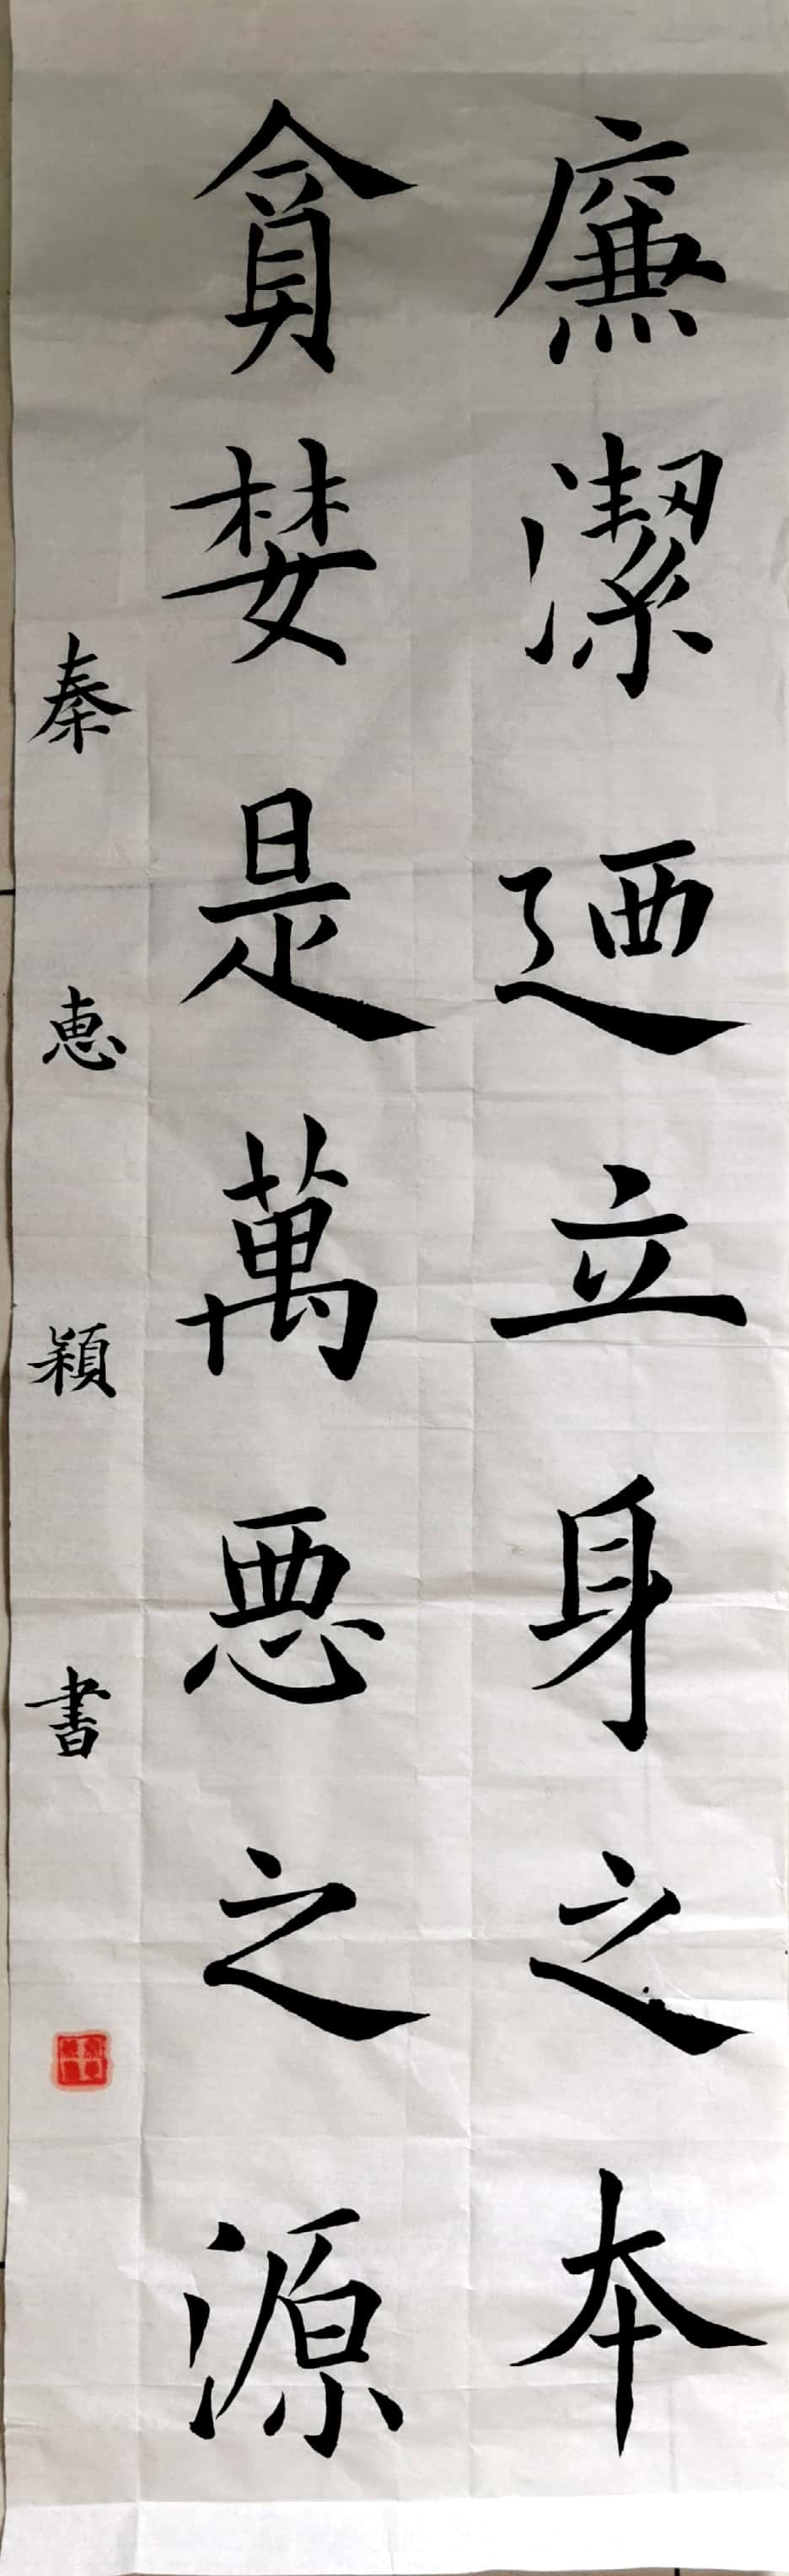 廉潔廼立身之本
貪婪是萬惡之源
秦惠穎書